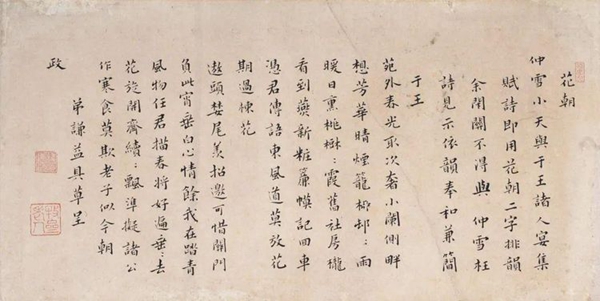 花朝
仲雪小天與于王諸人宴集
賦詩即用花朝二字排韻
余閉關不得與 仲雪枉
詩見示依韻奉和兼簡
于王
苑外春光取次奢小闌側畔
想芳華晴煙籠柳邨〻雨
暖日熏桃樹〻霞舊社
看到燕新粧簾幙記回車
憑君傳語東風道莫放花
期過楝花
遨頭婪尾羨招邀可惜關門
負此宵垂白心情餘我在踏青
風物任君描春將好遍垂〻去
花旋開齊續〻飄準擬諸公
作寒食莫欺老子似今朝
弟謙益具草呈
政